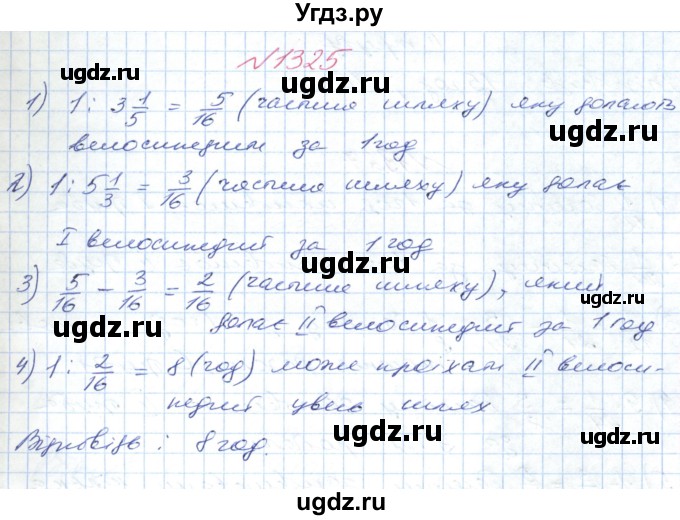 Угдз.ру
№1325
ugdz.ru ugdz.ru
1) 1 : 3 1/5 = 5/16 (частина шляху) яку долають
велосипедит за 1 год
ugdz.ru ugdz.ru
2) 1 : 5 1/3 = 3/16 (частина шляху) яку долає
I велосипедит за 1 год
ugdz.ru ugdz.ru
3) 5/16 - 3/16 = 2/16 (частина шляху), який
долає II велосипедит за 1 год
ugdz.ru ugdz.ru
4) 1 : 2/16 = 8 (год) може проїхати II велоси-
педит увесь шлях
ugdz.ru ugdz.ru
Відповідь : 8 год.
ugdz.ru ugdz.ru